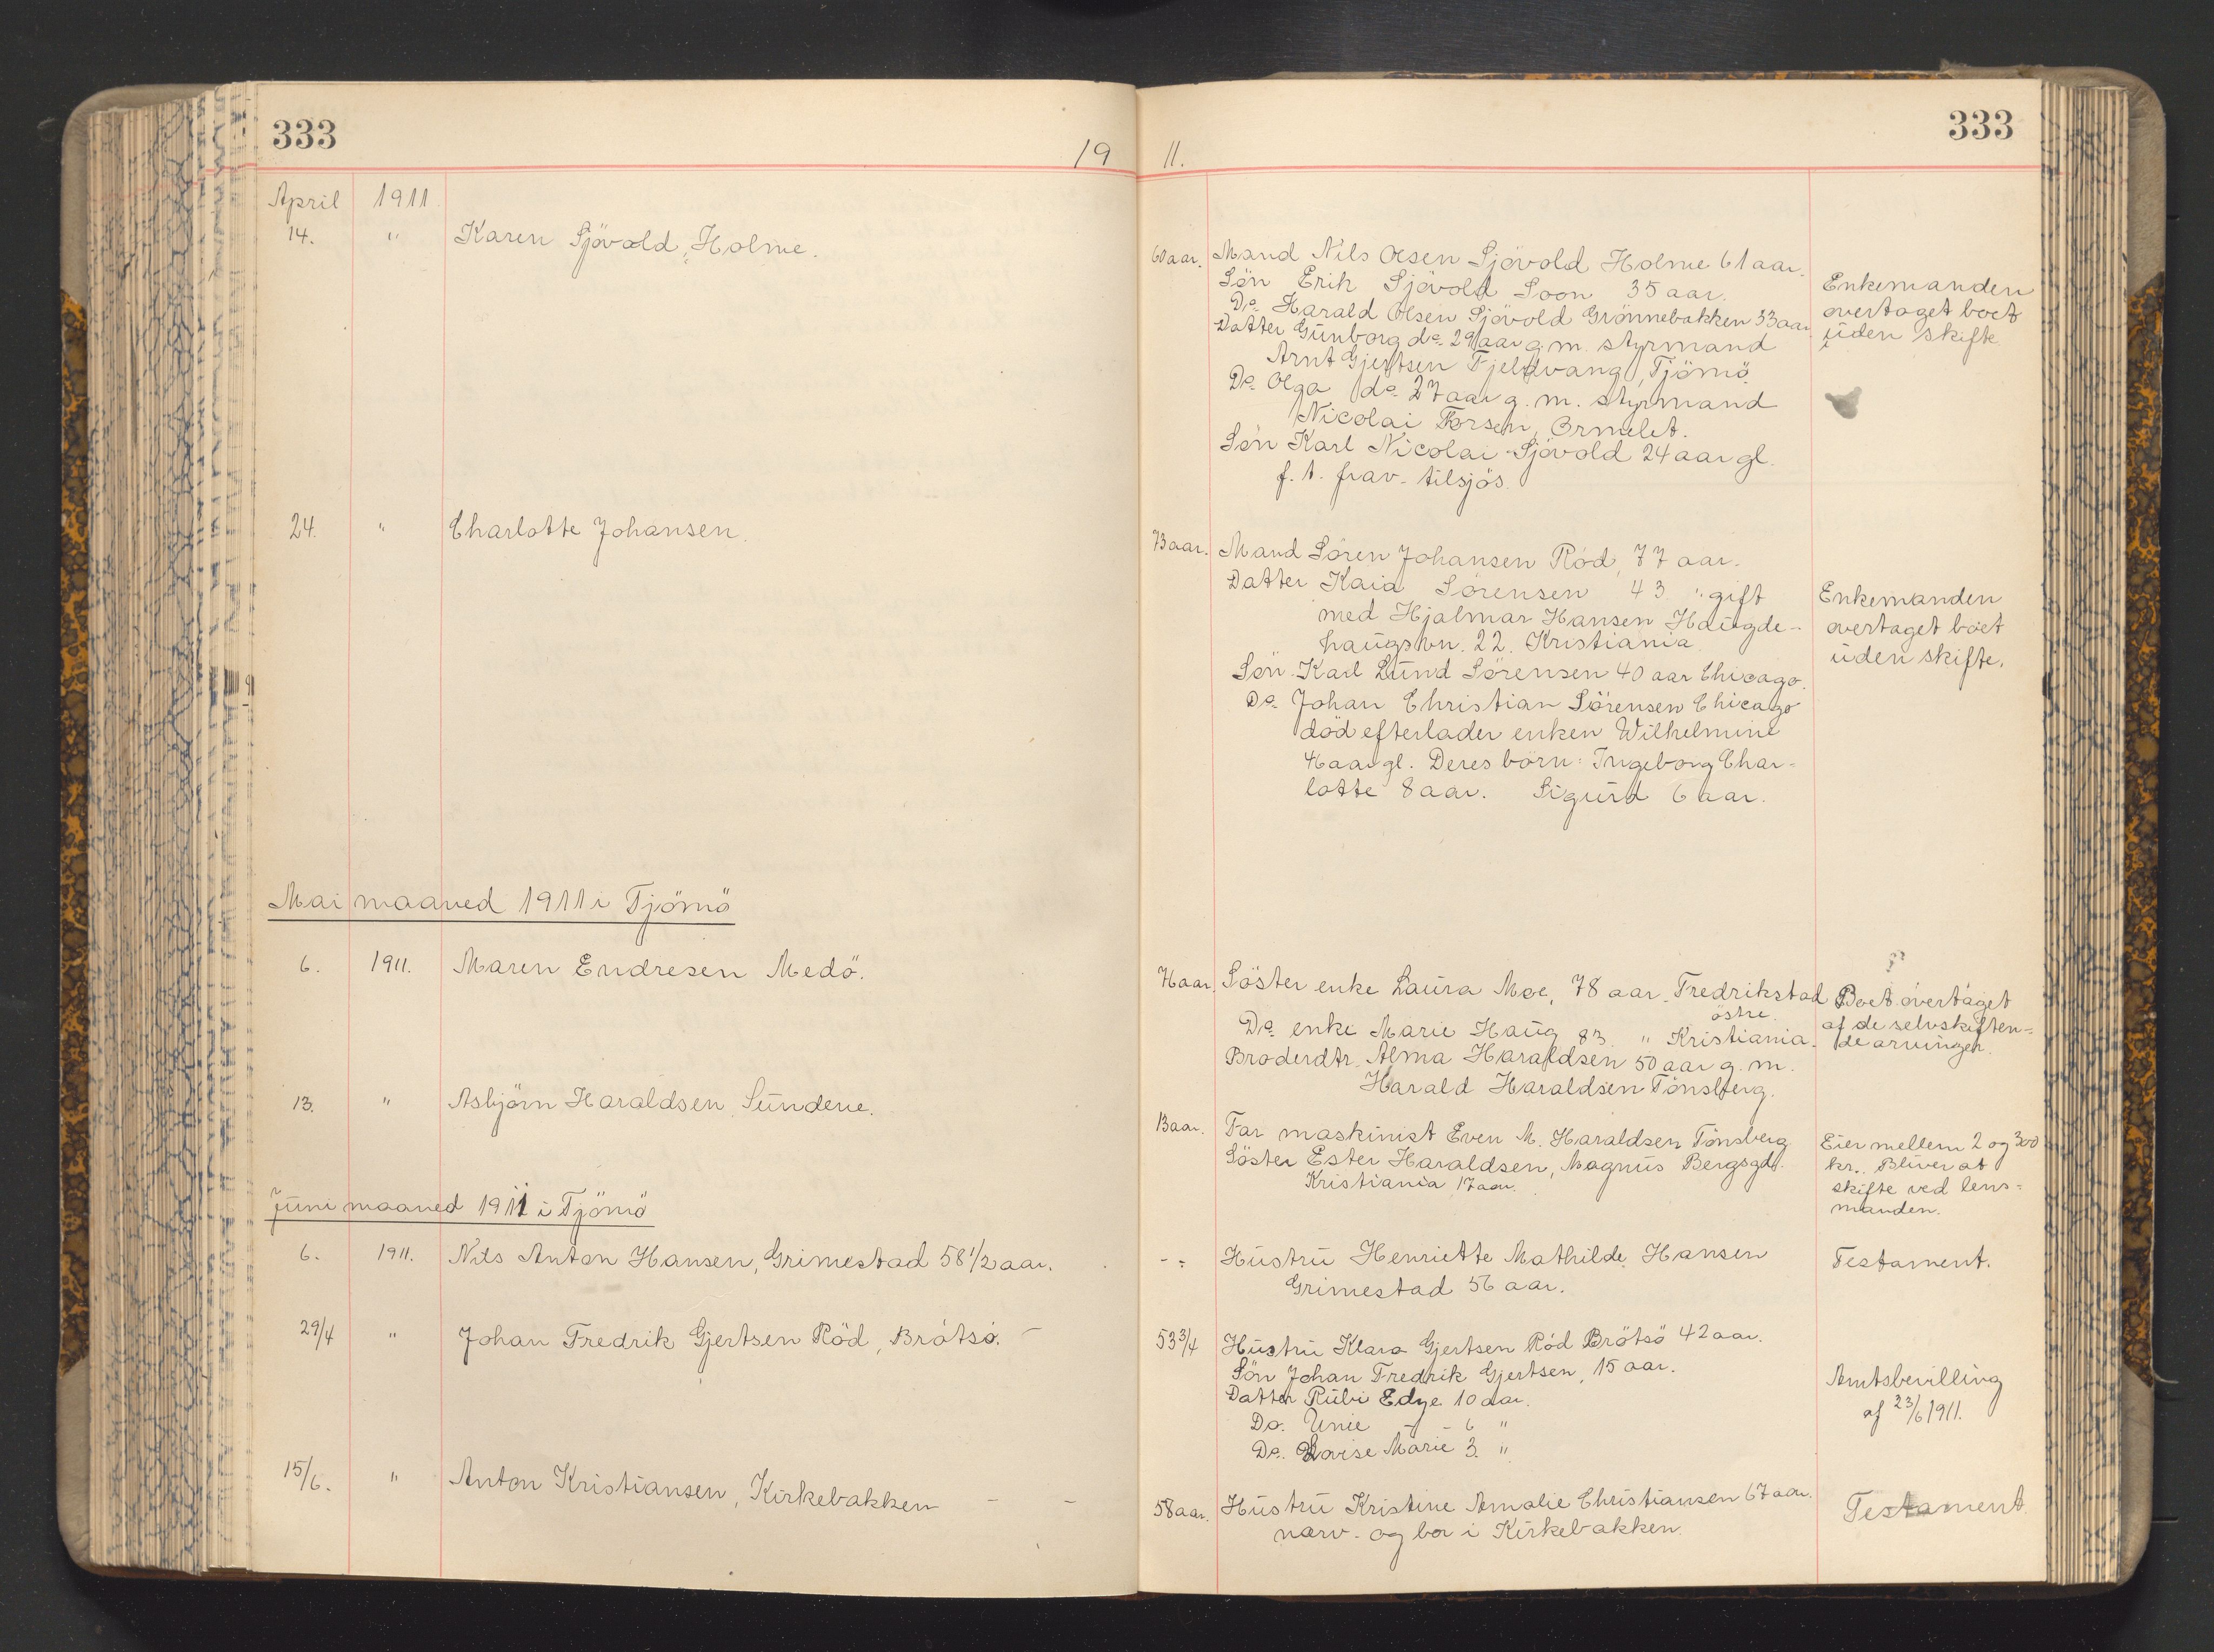 333
19
11.
333
April 1911
14. " Karen Sjövold, Holme.
60 aar. Mand Nils Olsen Sjövold Holme 61 aar.
Sön Erik Sjövold Soon 35 aar.
Do. Harald Olsen Sjövold Grönnebakken 33 aar
Datter Gunborg do. 29 aar g. m. styrmand
Arnt Gjertsen Fjeldvang, Tjömö
Do. Olga do. 27 aar g. m. styrmand
Nicolai Torsen, Ormelet.
Sön Karl Nicolai Sjövold 24 aar gl.
f. t. frav. tilsjös.
Enkemanden
overtaget boet
uden skifte
24. " Charlotte Johansen.
73 aar. Mand Sören Johansen Röd, 77 aar.
Datter Kaia Sörensen 43 " gift
med Hjalmar Hansen Haugde-
haugsvn. 22. Kristiania
Sön Karl Lund Sörensen 40 aar Chicago.
Do. Johan Christian Sörensen Chicago
död efterlader enken Wilhelmine
46 aar gl. Deres börn: Ingeborg Char-
lotte 8 aar. Sigurd 6 aar.
Enkemanden
overtaget boet
uden skifte.
Mai maaned 1911 i Tjömö
6. 1911. Maren Endresen Medö.
76 aar. Söster enke Laura Moe, 78 aar. Fredrikstad
östre.
Do. enke Marie Haug 83. " Kristiania.
Broderdtr. Alma Haraldsen 50 aar g. m.
Harald Haraldsen Tönsberg.
Boet overtaget
af de selvskiften-
de arvinger.
13. " Asbjörn Haraldsen, Sundene.
13 aar. Far maskinist Even M. Haraldsen Tönsberg
Söster Ester Haraldsen, Magnus Bergsgd.
Kristiania 17 aar.
Eier mellem 2 og 300
kr. Bliver at
skifte ved lens-
manden.
Juni maaned 1911 i Tjömö
6. 1911. Nils Anton Hansen, Grimestad 58 1/2 aar.
- " - Hustru Henriette Mathilde Hansen
Grimestad 56 aar.
Testament.
29/4 " Johan Fredrik Gjertsen Röd, Brötsö. -
53 3/4 Hustru Klara Gjertsen Röd Brötsö 42 aar.
Sön Johan Fredrik Gjertsen, 15 aar.
Datter Rubi Edye 10 aar.
Do. Unie - 6 "
Do. Lovise Marie 3. "
Amtsbevilling
af 23/6 1911.
15/6. " Anton Kristiansen, Kirkebakken - -
58 aar. Hustru Kristine Amalie Christiansen 67 aar.
narv. og bor i Kirkebakken.
Testament